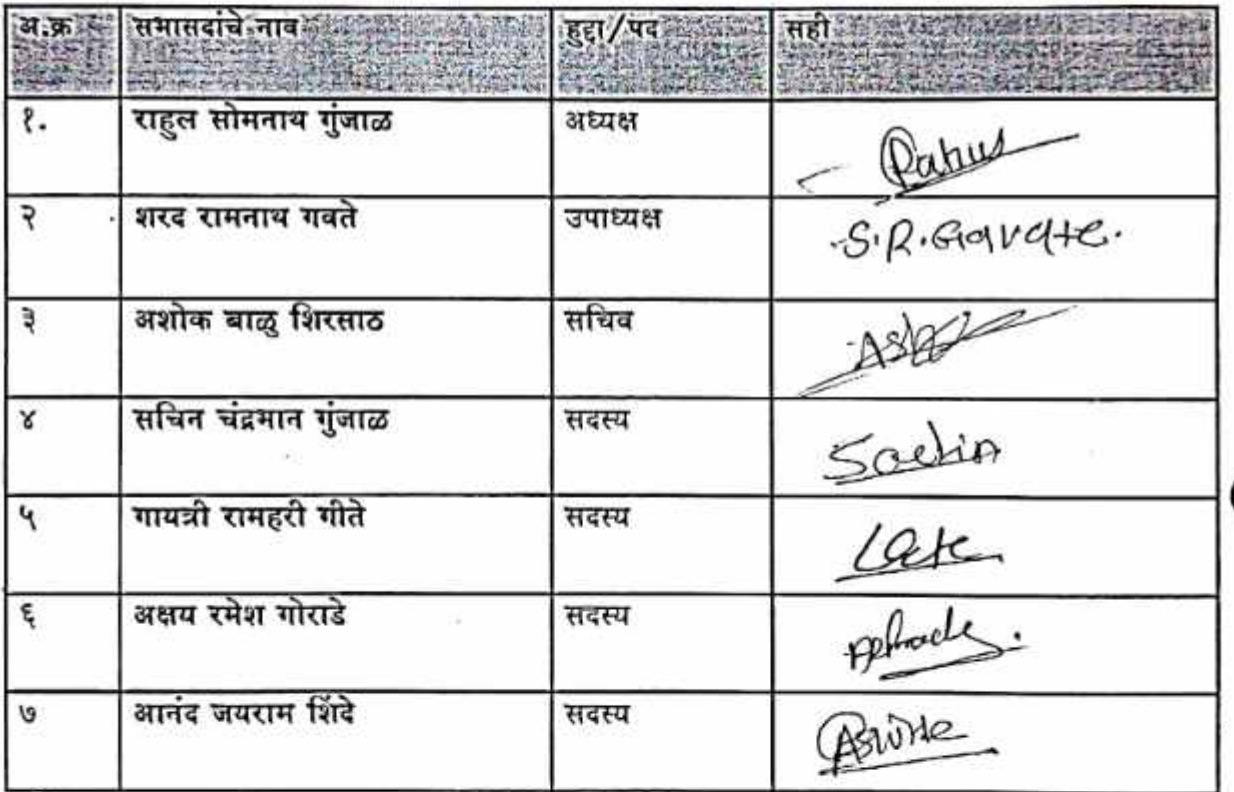 अ.क्र सभासदांचे नाव हुद्दा/पद सही
१. राहुल सोमनाथ गुंजाळ अध्यक्ष Rahul
२ शरद रामनाथ गवते उपाध्यक्ष S.R.Gavate.
३ अशोक बाळु शिरसाठ सचिव
४ सचिन चंद्रभान गुंजाळ सदस्य Sachin
५ गायत्री रामहरी गीते सदस्य
६ अक्षय रमेश गोराडे सदस्य
७ आनंद जयराम शिंदे सदस्य